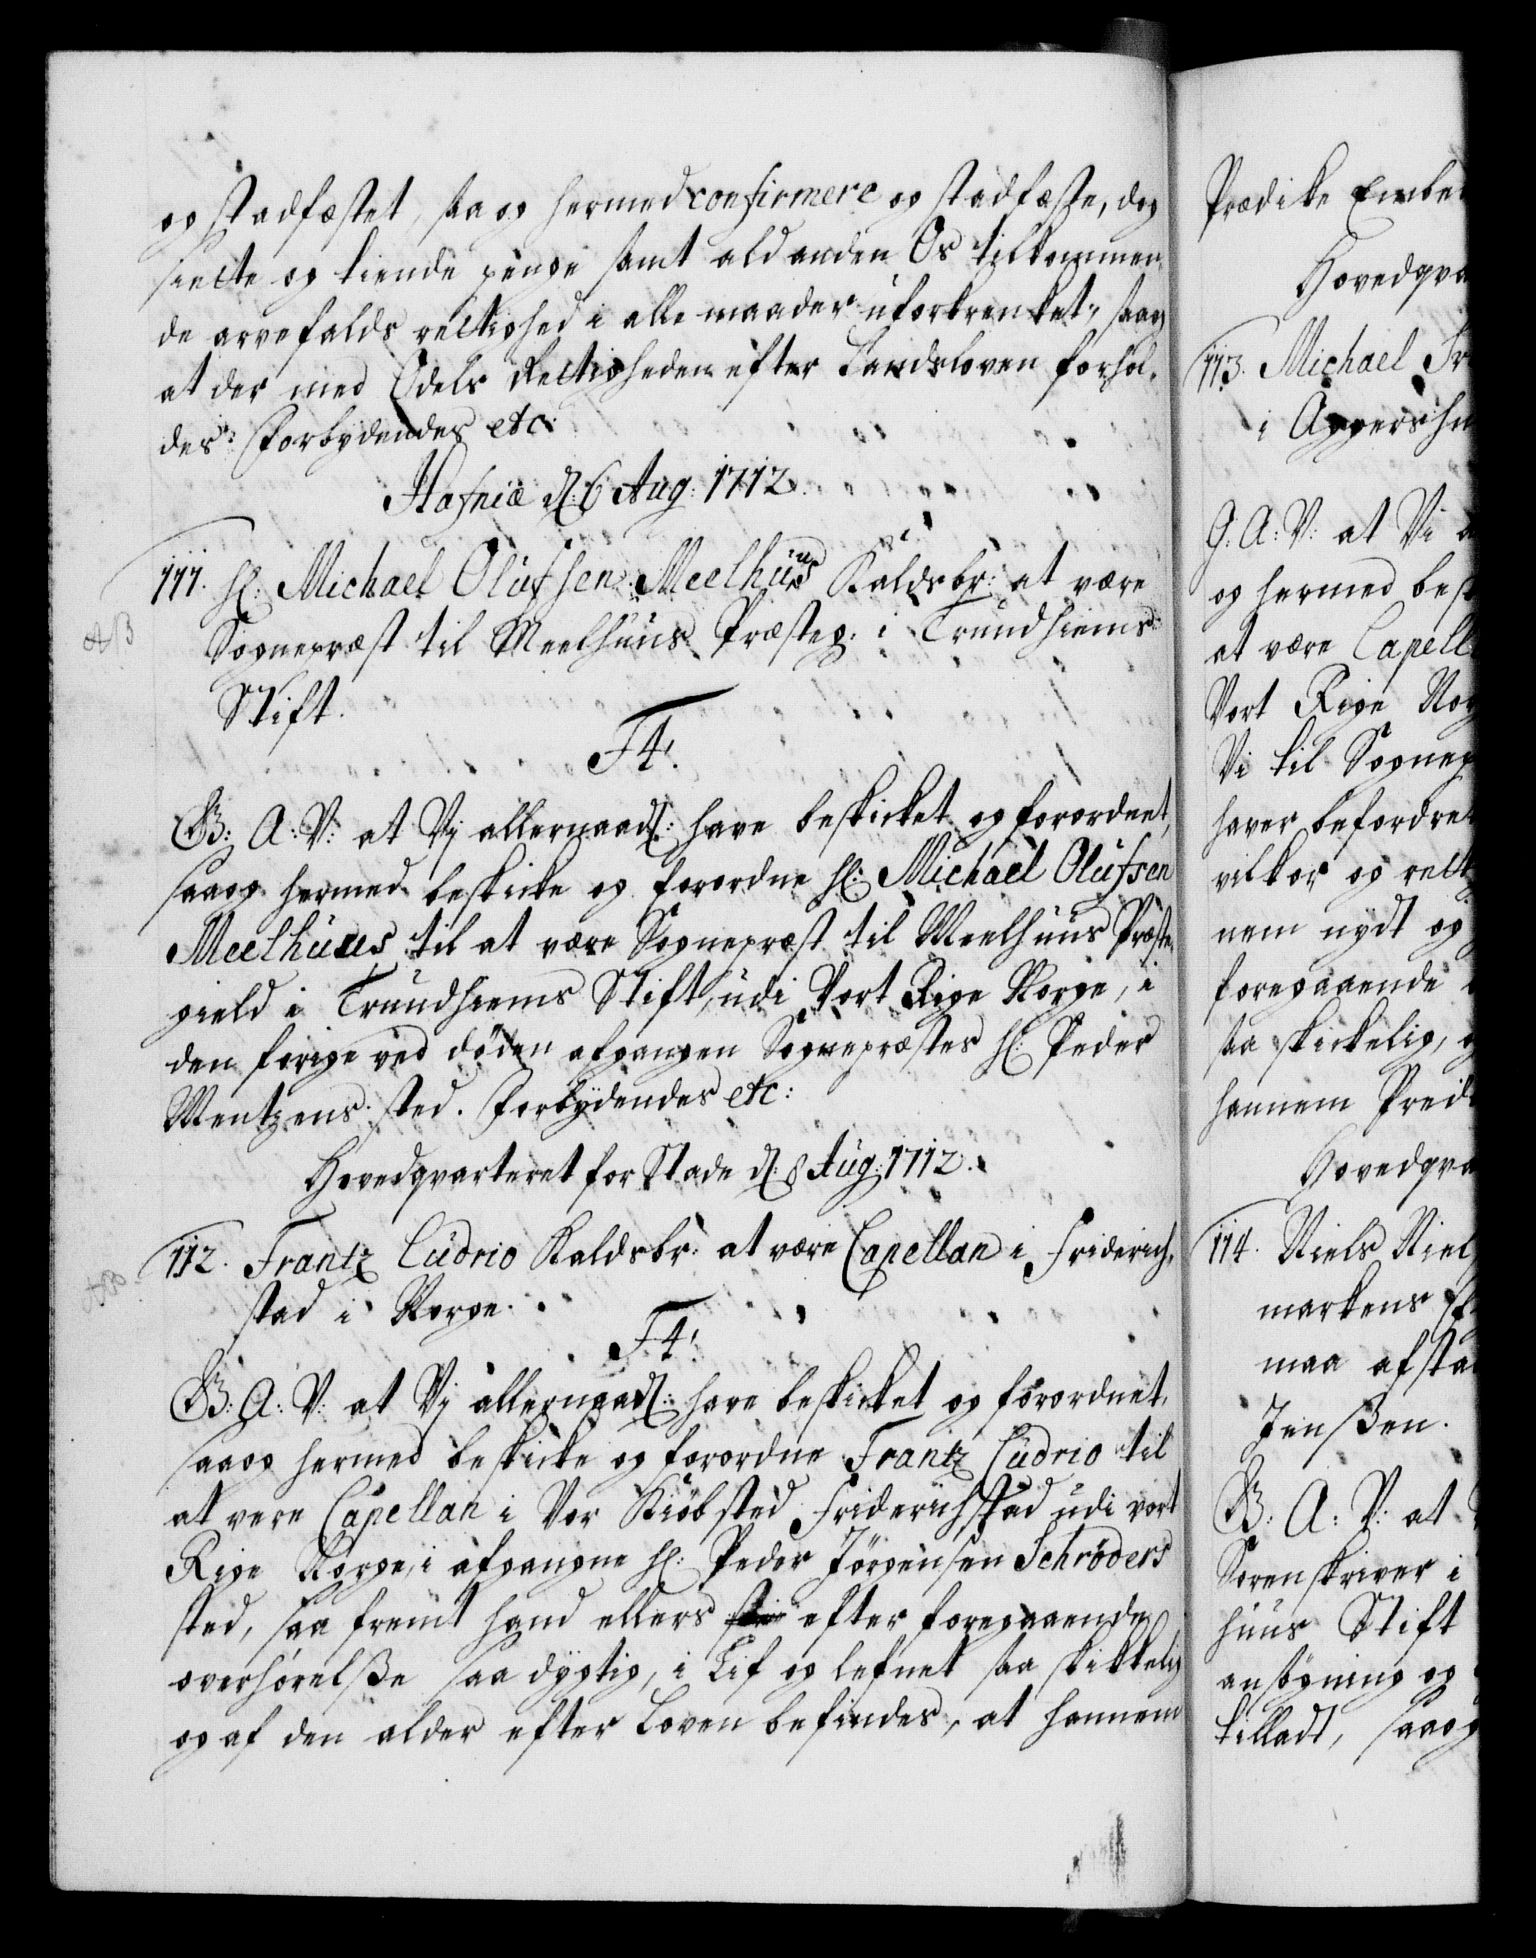 og stadfæstet, saa og hermed confirmere og stadfæste, dog
siette og tiende penge samt ald anden Os tilkommen,
de arvefalds rettighed i alle maader uforkrenket, saa og
at der med Odels Rettigheden efter Landsloven forhol,
des: Forbydendes etc:
Hafniæ d: 6 Aug: 1712.
111. Hr: Michael Olufsen Meelhuus Kaldsbr: at være
Sognepræst til Meelhuus Præsteg: i Trundhiems
Stift.
F4!
G: A: V: at Vj allernaadst: have beskicket og forordnet,
saa og hermed beskicke og forordne Hr: Michael Olufsen
Meelhuus til at være Sognepræst til Meelhuus Præste,
gield i Trundhiems Stift, udi Vort Rige Norge, i
den forige ved døden afgangen Sognepræstes Hr: Peder
Mentzens sted. Forbydendes etc:
Hovedqvarteret for Stade d: 8 Aug: 1712.
112. Frantz Cudrio Kaldsbr: at være Capellan i Friderich,
stad i Norge.
F4!
G: A: V: at Vj allernaadst: have beskicket og forordnet,
saa og hermed beskicke og forordne Frantz Cudrio til
at være Capellan i Vor Kiøbsted Friderichstad udi vort
Rige Norge, i afgangne Hr: Peder Jørgensen Schrøders
sted, saa fremt hand ellers efter foregaaende
overhørelße saa dygtig, i Lif og lefnet saa skikkelig
og af den alder efter Loven befindes, at hannem
Prædike Embe
Hovedqva
113. Michael Fr
i Aggershu
G: A: V: at Vi
og hermed bes
at være Capell
Vort Rige Nor
Vi til Sognep
haver befordre
vilkor og rett
nem nydt og
foregaaende
saa skikkelig, o
hannem Predi
Hovedqva
114. Niels Niel
markens
maa afsta
Jenßen.
G: A: V: at
Sorenskriver i
huus Stift
ansøgning og
tilladt, saa og